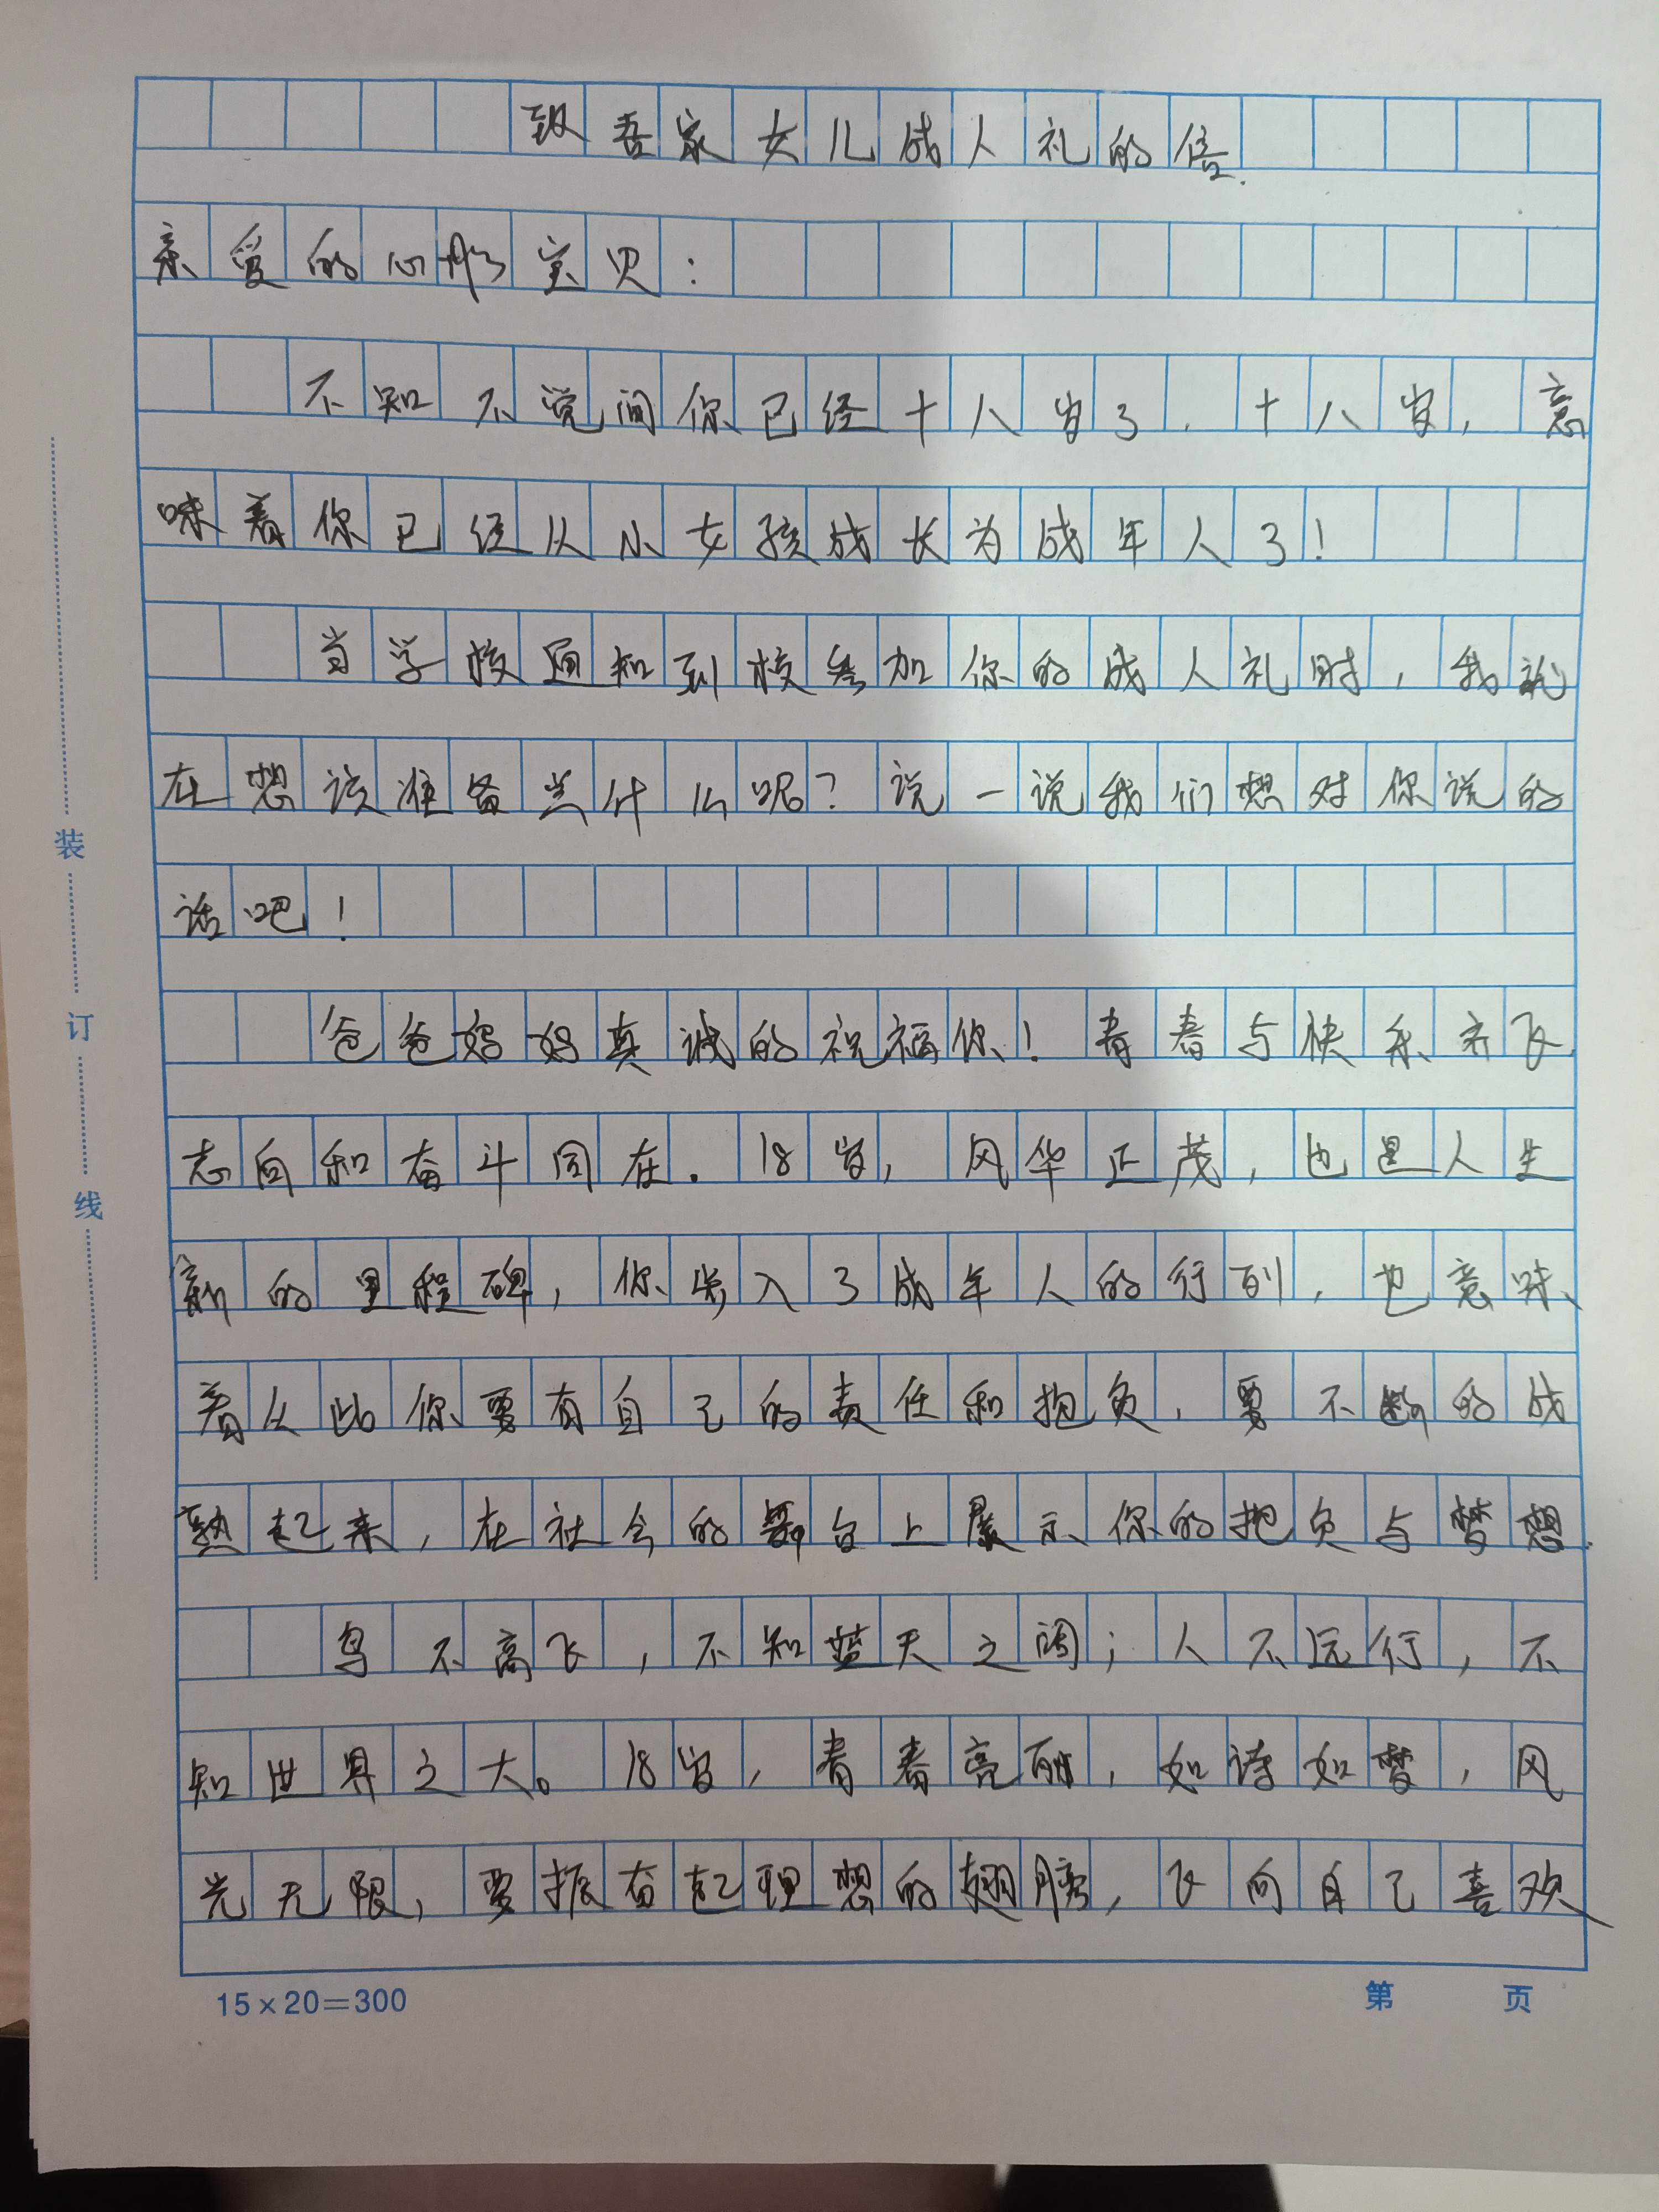 致吾家女儿成人礼的信.
亲爱的心彤宝贝：
不知不觉间你已经十八岁了.十八岁，意
味着你已经从小女孩成长为成年人了！
当学校通知到校参加你的成人礼时，我就
在想该准备些什么呢？说一说我们想对你说的
话吧！
爸爸妈妈真诚的祝福你！青春与快乐齐飞.
志向和奋斗同在.18岁，风华正茂，也是人生
新的里程碑，你步入了成年人的行列，也意味
着从此你要有自己的责任和抱负，要不断的成
熟起来，在社会的舞台上展示你的抱负与梦想.
鸟不高飞，不知蓝天之阔；人不远行，不
知世界之大。18岁，青春亮丽，如诗如梦，风
光无限，要振奋起理想的翅膀，飞向自己喜欢
15×20=300
第 页
装订线